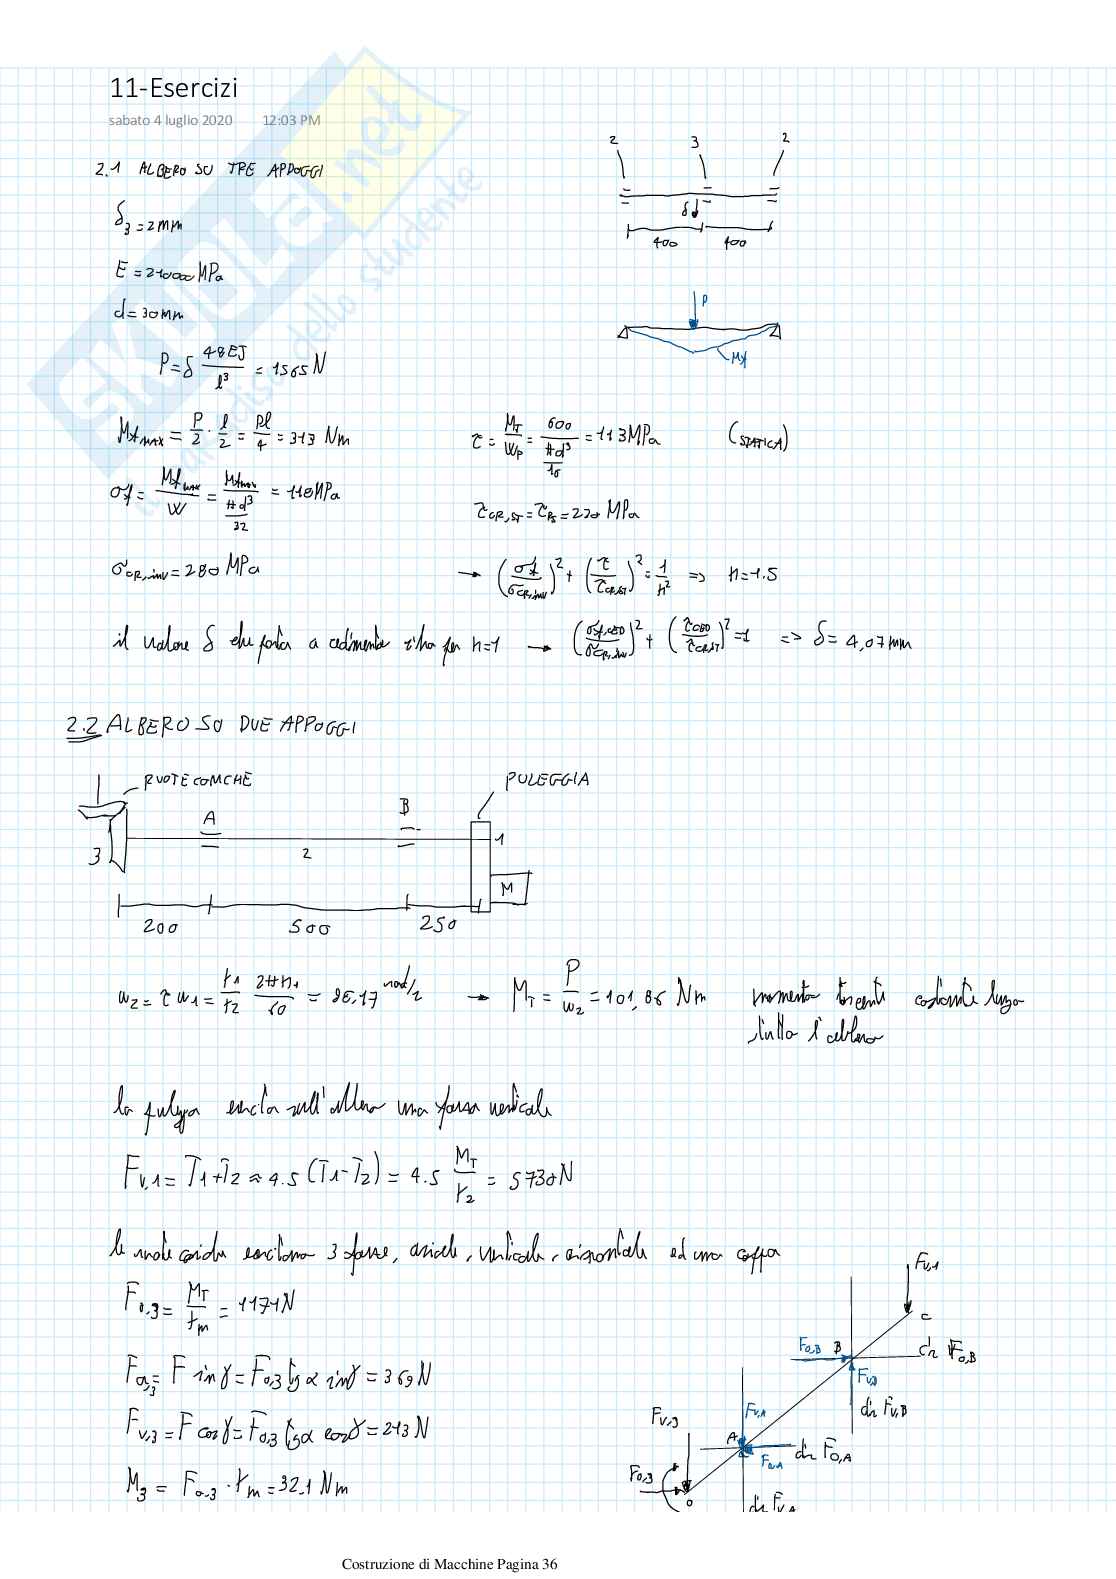 11-Esercizi
sabato 4 luglio 2020 12:03 PM
2.1 ALBERO SU TRE APPOGGI
2 3 2
δ
400 400
δ3 = 2mm
E = 210000 MPa
d = 30mm
P
Mf
P = δ 48EJ / l³ = 1565 N
Mf MAX = P/2 · l/2 = Pl/4 = 313 Nm
τ = MT/Wp = 600 / (πd³/16) = 113 MPa (STATICA)
σf = Mf max / W = Mf max / (πd³/32) = 118 MPa
τCR,ST = τPS = 270 MPa
σCR,inv = 280 MPa
→ (σf/σCR,inv)² + (τ/τCR,ST)² = 1/n² => n=1.5
il valore δ che porta a cedimento si ha per n=1 → (σf,CED/σCR,inv)² + (τCED/τCR,ST)² = 1 => δ = 4,07 mm
2.2 ALBERO SU DUE APPOGGI
RUOTE CONICHE PULEGGIA
A B
3 2 1
M
200 500 250
ω2 = τ ω1 = r1/r2 2πn1/60 = → MT = P/ω2 = 101,86 Nm momento torcente costante lungo
tutto l'albero
la puleggia esercita sull'albero una forza verticale
Fv,1 = T1+T2 ≈ 4.5 (T1-T2) = 4.5 MT/r2 = 5730 N
le ruote coniche esercitano 3 forze, assiale, verticale, orizzontale ed una coppia
Fo,3 = MT/rm = 1171 N
Fa,3 = F sinγ = Fo,3 tgα sinγ = 369 N
Fv,3 = F cosγ = Fo,3 tgα cosγ = 213 N
M3 = Fa,3 · rm = 32.1 Nm
Fv,1
C
Fo,B B dir Fo,B
Fv,B
dir Fv,B
Fv,3 Fv,A
A dir Fo,A
Fo,A
Fo,3
O
dir Fv,A
Costruzione di Macchine Pagina 36
SKUOLA.net